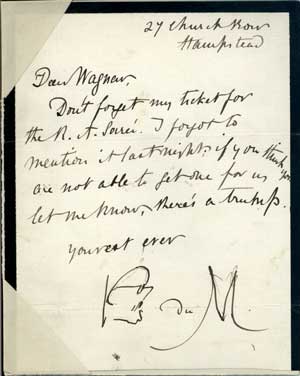 27 Church Row
Hampstead
Dear Wagner,
Don't forget my ticket for
the R. A. Soirée. I forgot to
mention it last night; if you think you
are not able to get one for us
let me know, there's a trump.
yours ever
du M.